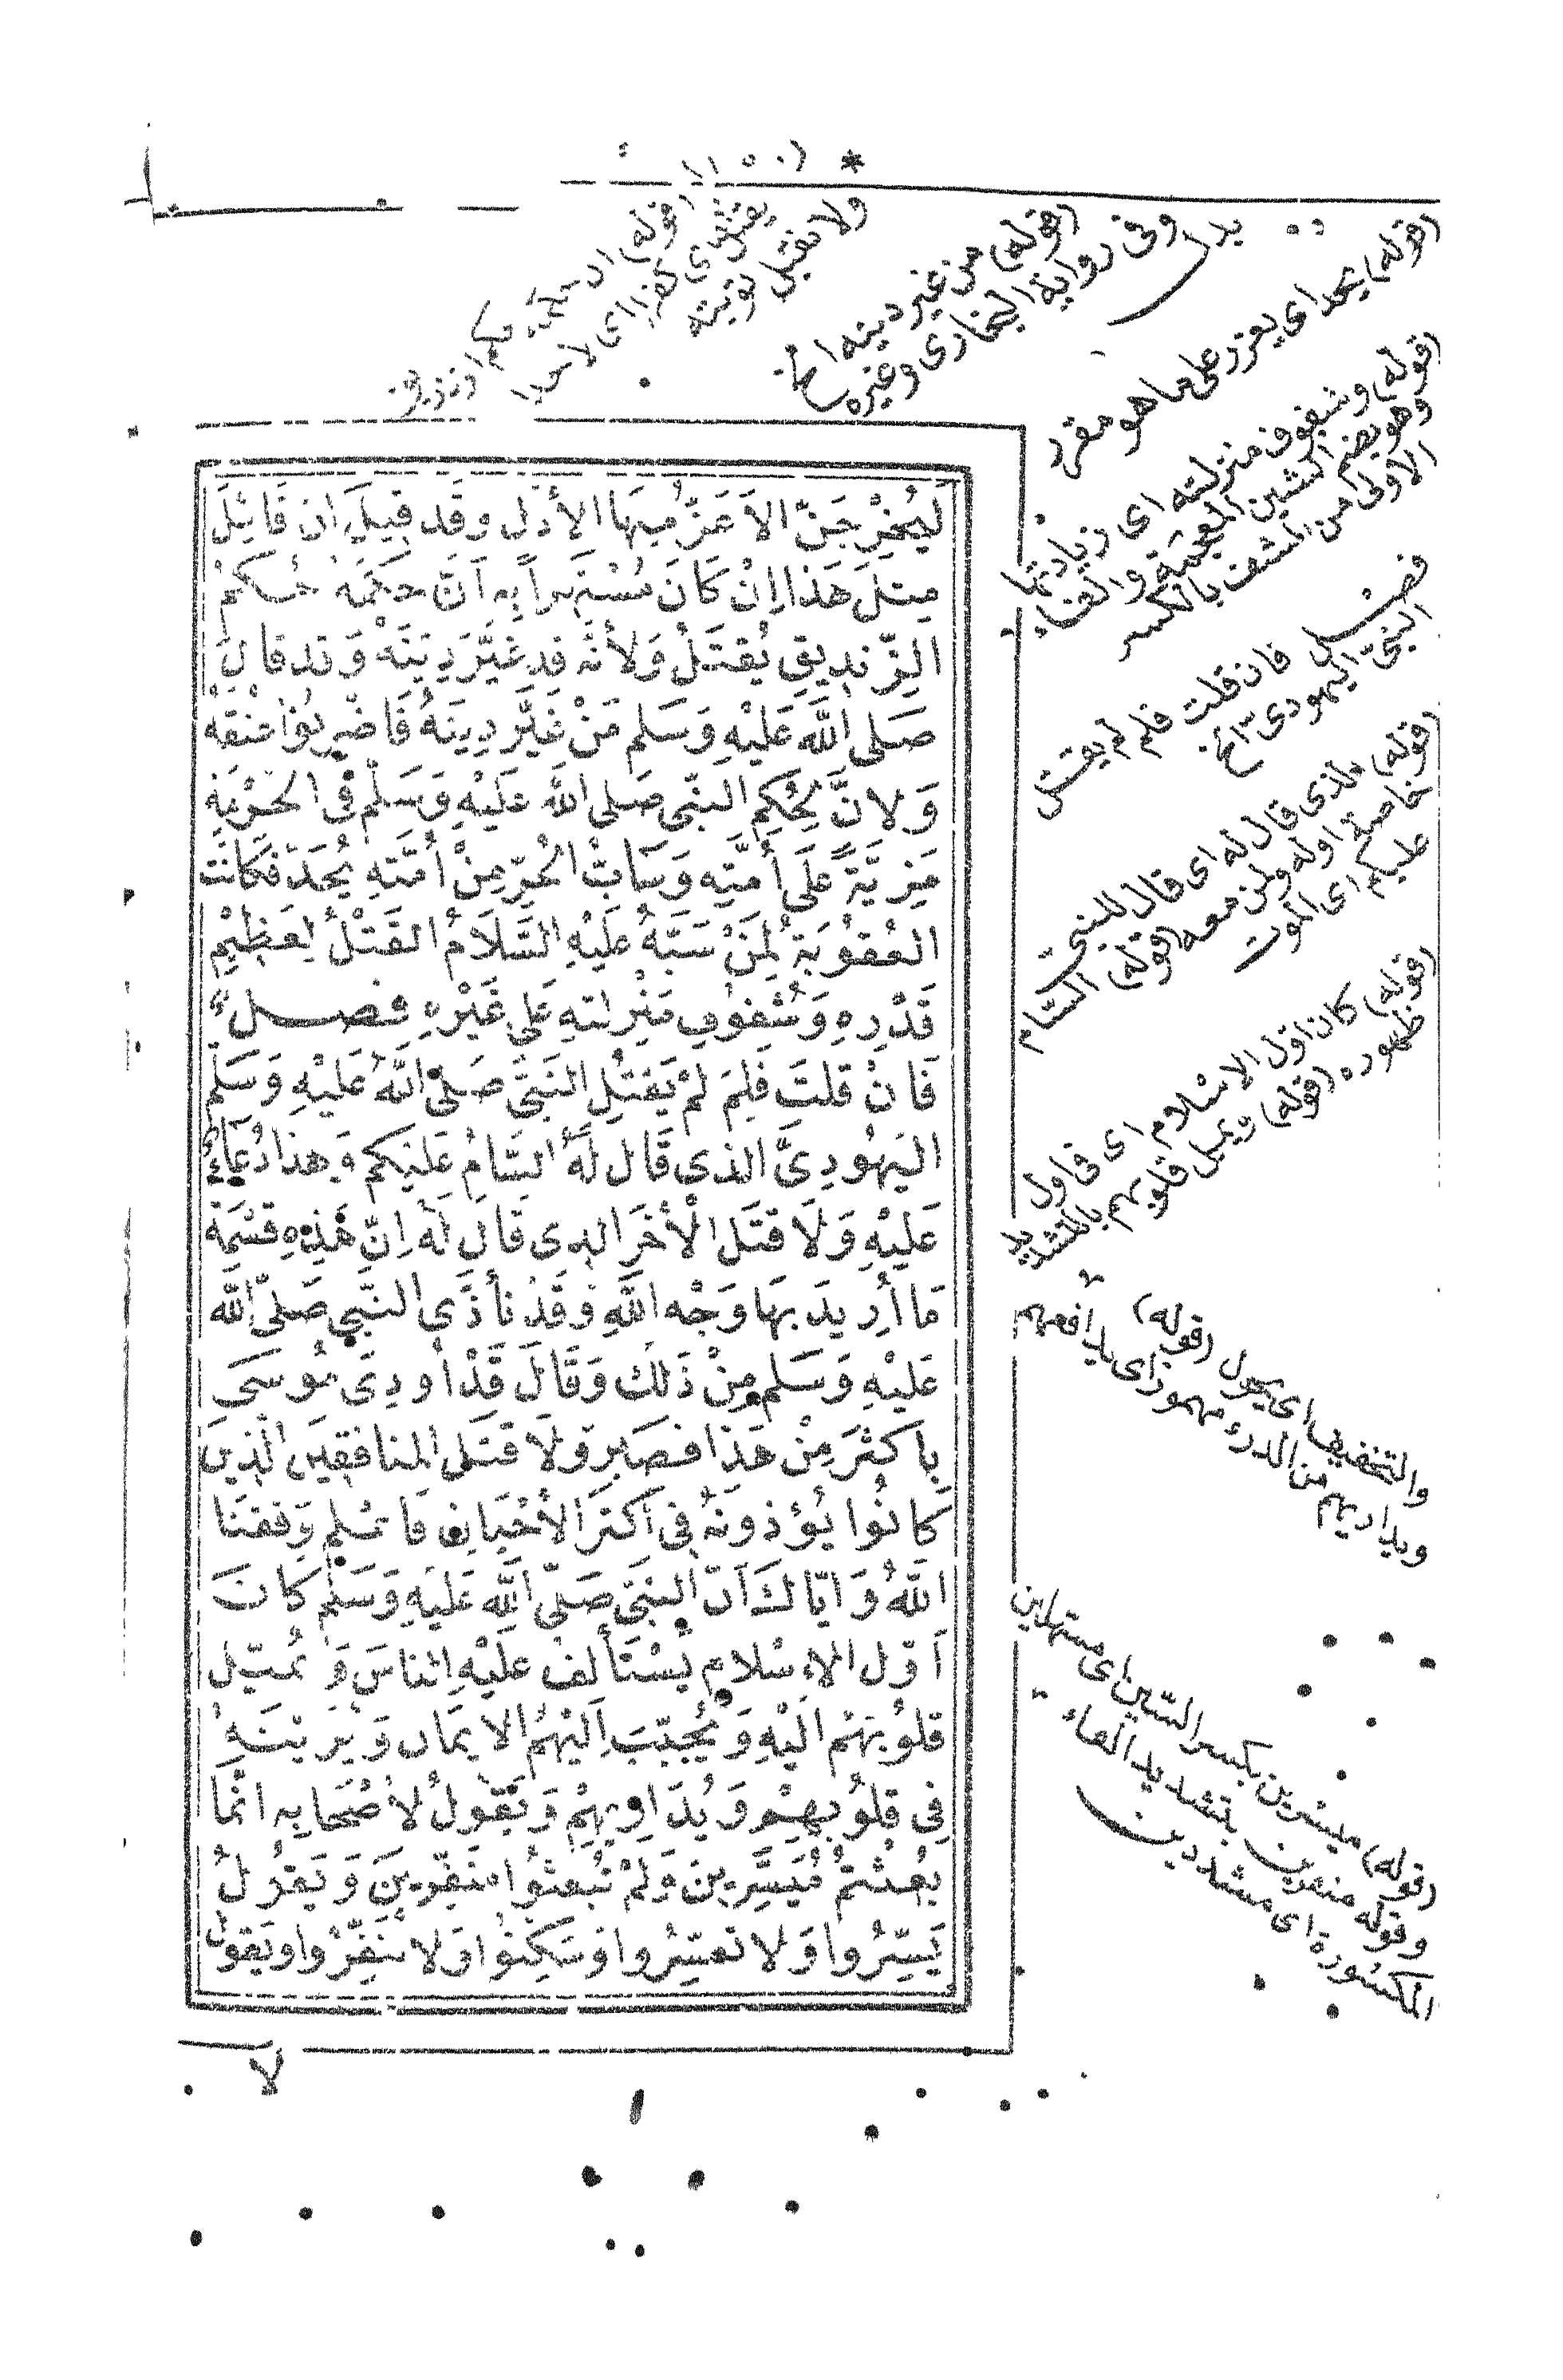 لَيُخْرِجَنَّ الاَعَزُّ مِنهَا الأذل وقَد قِيلَ ان قَائِلَ
مِثلَ هَذا اِنْ كَانَ مُسْتَتِراً بِهِ اَنَّ حُكمَهُ حُكمُ
الزِّنديقِ يُقتَلُ وَلأنَّهُ قد غَيَّرَ دِينَهُ وَقد قال
صَلى اللَّه عَلَيْهِ وَسَلم مَنْ غَيَّر دِينَهُ فَاضْرِبُوا عُنقَهُ
وَلانَّ لِحُكمِ النبّى صَلى اللّه عَلَيْهِ وَسَلّم فى الحُرْمَةِ
مَزِيَّةً عَلَى أُمَّتِهِ وَسَابُّ الْحُرِّ مِنْ أُمَّتِهِ يُحَدّ فكَانَت
العُقُوبَةُ لِمَنْ سَبَّهُ عَلَيْهِ السَّلَامُ القَتْلُ لِعَظِيْمِ
قَدْرِهِ وَشُفوفِ مَنْزِلتهِ عَلى غَيْرِهِ فصل
فَانْ قلتَ فَلِمَ لمْ يَقتُلِ النَبَىّ صَلّى اللّه عَليْهِ وَسَلّم
اليَهُودِىَّ الذى قَال لَهُ السَّامُ عَلَيكم وَهذا دُعَاءٌ
عَلَيْهِ وَلَا قتَلَ الْأَخَر الذى قَال لَه اِنّ هَذِهِ قسْمَة
مَا أُرِيدَ بهَا وَجْه اللَّهِ وَقَدْ تأذَّى النَّبِي صَلىّ اللّه
عَليْهِ وَسَلم مِنْ ذَلِكَ وَقَالَ قَدْ اُوذِىَ مُوسَى
بِاَكثَرَ مِنْ هَذَا فصَبَر وَلَا قتَل المنافقِين الّذِينَ
كانُوا يُؤذونَهُ فِى اَكثَرِ الأحْيَانِ فَاعْلم وَفقنَا
اللَّهُ وَاِيّاكَ اَنّ النبَىّ صَلّى اللَّه عَلَيْهِ وَسَلّم كَانَ
اَوّل الاِسْلام يَسْتَألف عَلَيْهِ النّاسَ وَيُميّل
قلُوبَهُم اليْهِ وَيُحبّبَ اِلَيْهِمُ الايمَان وَيُزَيّنَهُ
فِى قلُوبِهِمْ وَيُدَاوِيهِمْ وَيَقُولُ لأَصْحَابِه انّمَا
بُعِثْتُمْ مُيَسِّرِينَ وَلمْ تُبعثُوا مُنَفِّرِينَ وَيَقُولُ
يَسِّرُوا وَلا تُعَسِّرُوا وَسَكِّنُوا وَلا تُنَفِّرُوا ويَقول
لا
(قوله) يحد اى يعزر على ما هو مقرر
(قوله) وشفوف منزلته اى زيادتها
وهو بضم الشين المعجمة والفاء
الاولى من الشف بالكسر
فصل فان قلت فلم لم يقتل
النبىّ اليهودى الخ
(قوله) الذى قال له اى قال للنبى
خاصة اوله ولمن معه (قوله) السّام
عليكم اى الموت
(قوله) كان اوّل الاسلام اى فى اول
ظهوره (قوله) ويميل قلوبهم بالتشديد
والتخفيف اى يحول (قوله)
ويداريهم من الدرء مهموز اى يدافعهم
(قوله) ميسرين بكسر السّين اى مسهلين
وقوله منفرين بتشديد الفاء
المكسورة اى مشددين
(قوله) من غير دينه الخ
وفى رواية البخارى وغيره
بدل
ولا تقبل توبته